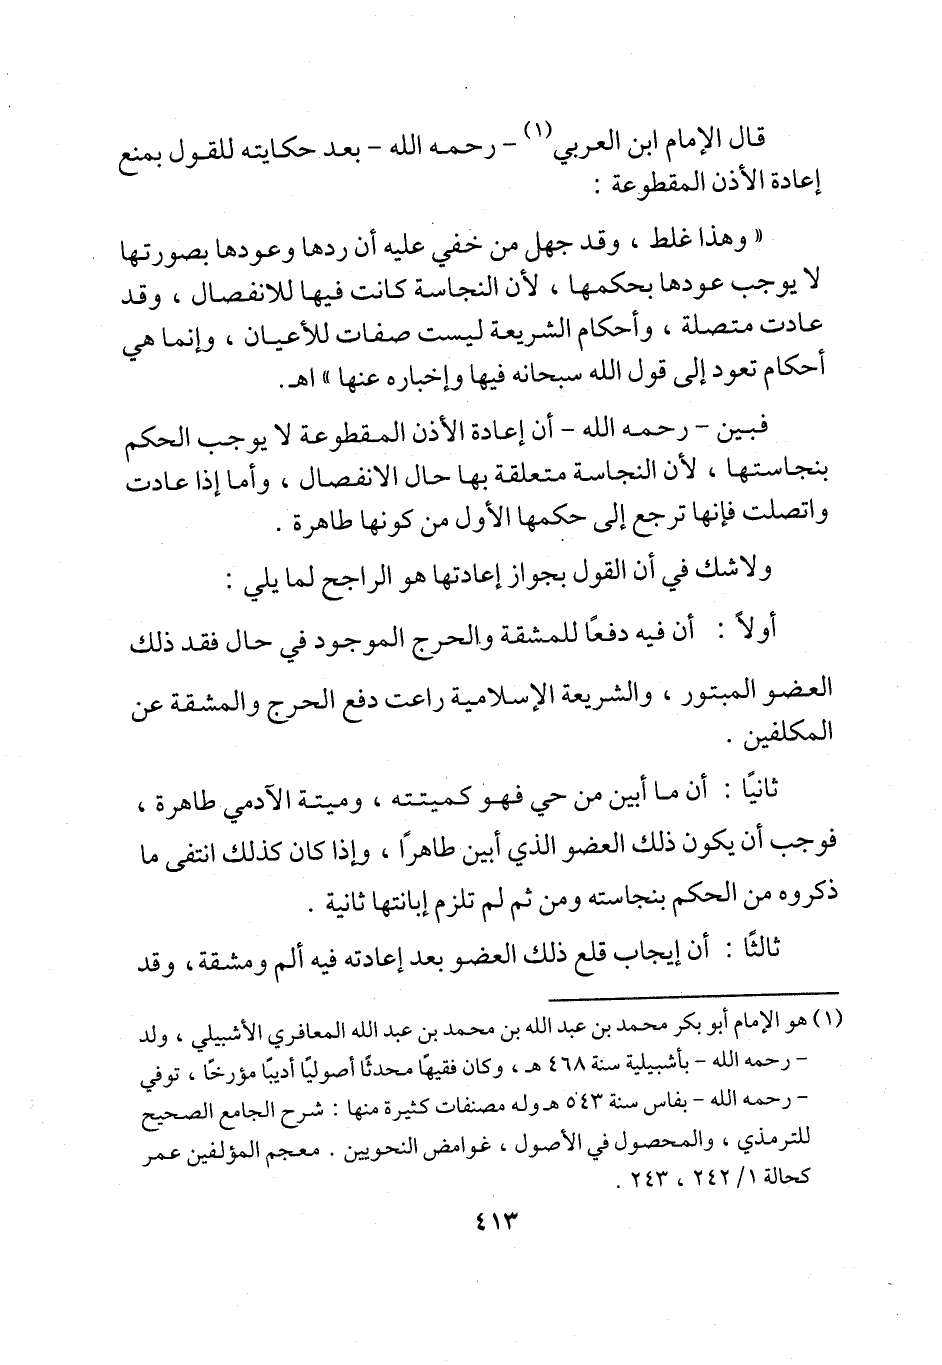 قال الإمام ابن العربي(١) – رحمه الله – بعد حكايته للقول بمنع
إعادة الأذن المقطوعة :
« وهذا غلط ، وقد جهل من خفي عليه أن ردها وعودها بصورتها
لا يوجب عودها بحكمها ، لأن النجاسة كانت فيها للانفصال ، وقد
عادت متصلة ، وأحكام الشريعة ليست صفات للأعيان ، وإنما هي
أحكام تعود إلى قول الله سبحانه فيها وإخباره عنها » اهـ.
فبين – رحمه الله – أن إعادة الأذن المقطوعة لا يوجب الحكم
بنجاستها ، لأن النجاسة متعلقة بها حال الانفصال ، وأما إذا عادت
واتصلت فإنها ترجع إلى حكمها الأول من كونها طاهرة .
ولاشك في أن القول بجواز إعادتها هو الراجح لما يلي :
أولاً : أن فيه دفعًا للمشقة والحرج الموجود في حال فقد ذلك
العضو المبتور ، والشريعة الإسلامية راعت دفع الحرج والمشقة عن
المكلفين .
ثانيًا : أن ما أبين من حي فهو كميتته ، وميتة الآدمي طاهرة ،
فوجب أن يكون ذلك العضو الذي أبين طاهرًا ، وإذا كان كذلك انتفى ما
ذكروه من الحكم بنجاسته ومن ثم لم تلزم إبانتها ثانية .
ثالثًا : أن إيجاب قلع ذلك العضو بعد إعادته فيه ألم ومشقة، وقد
(١) هو الإمام أبو بكر محمد بن عبد الله بن محمد بن عبد الله المعافري الأشبيلي ، ولد
– رحمه الله – بأشبيلية سنة ٤٦٨ هـ ، وكان فقيهًا محدثًا أصوليًا أديبًا مؤرخًا ، توفي
– رحمه الله – بفاس سنة ٥٤٣ هـ وله مصنفات كثيرة منها : شرح الجامع الصحيح
للترمذي ، والمحصول في الأصول ، غوامض النحويين . معجم المؤلفين عمر
كحالة ١/ ٢٤٢ ، ٢٤٣ .
٤١٣